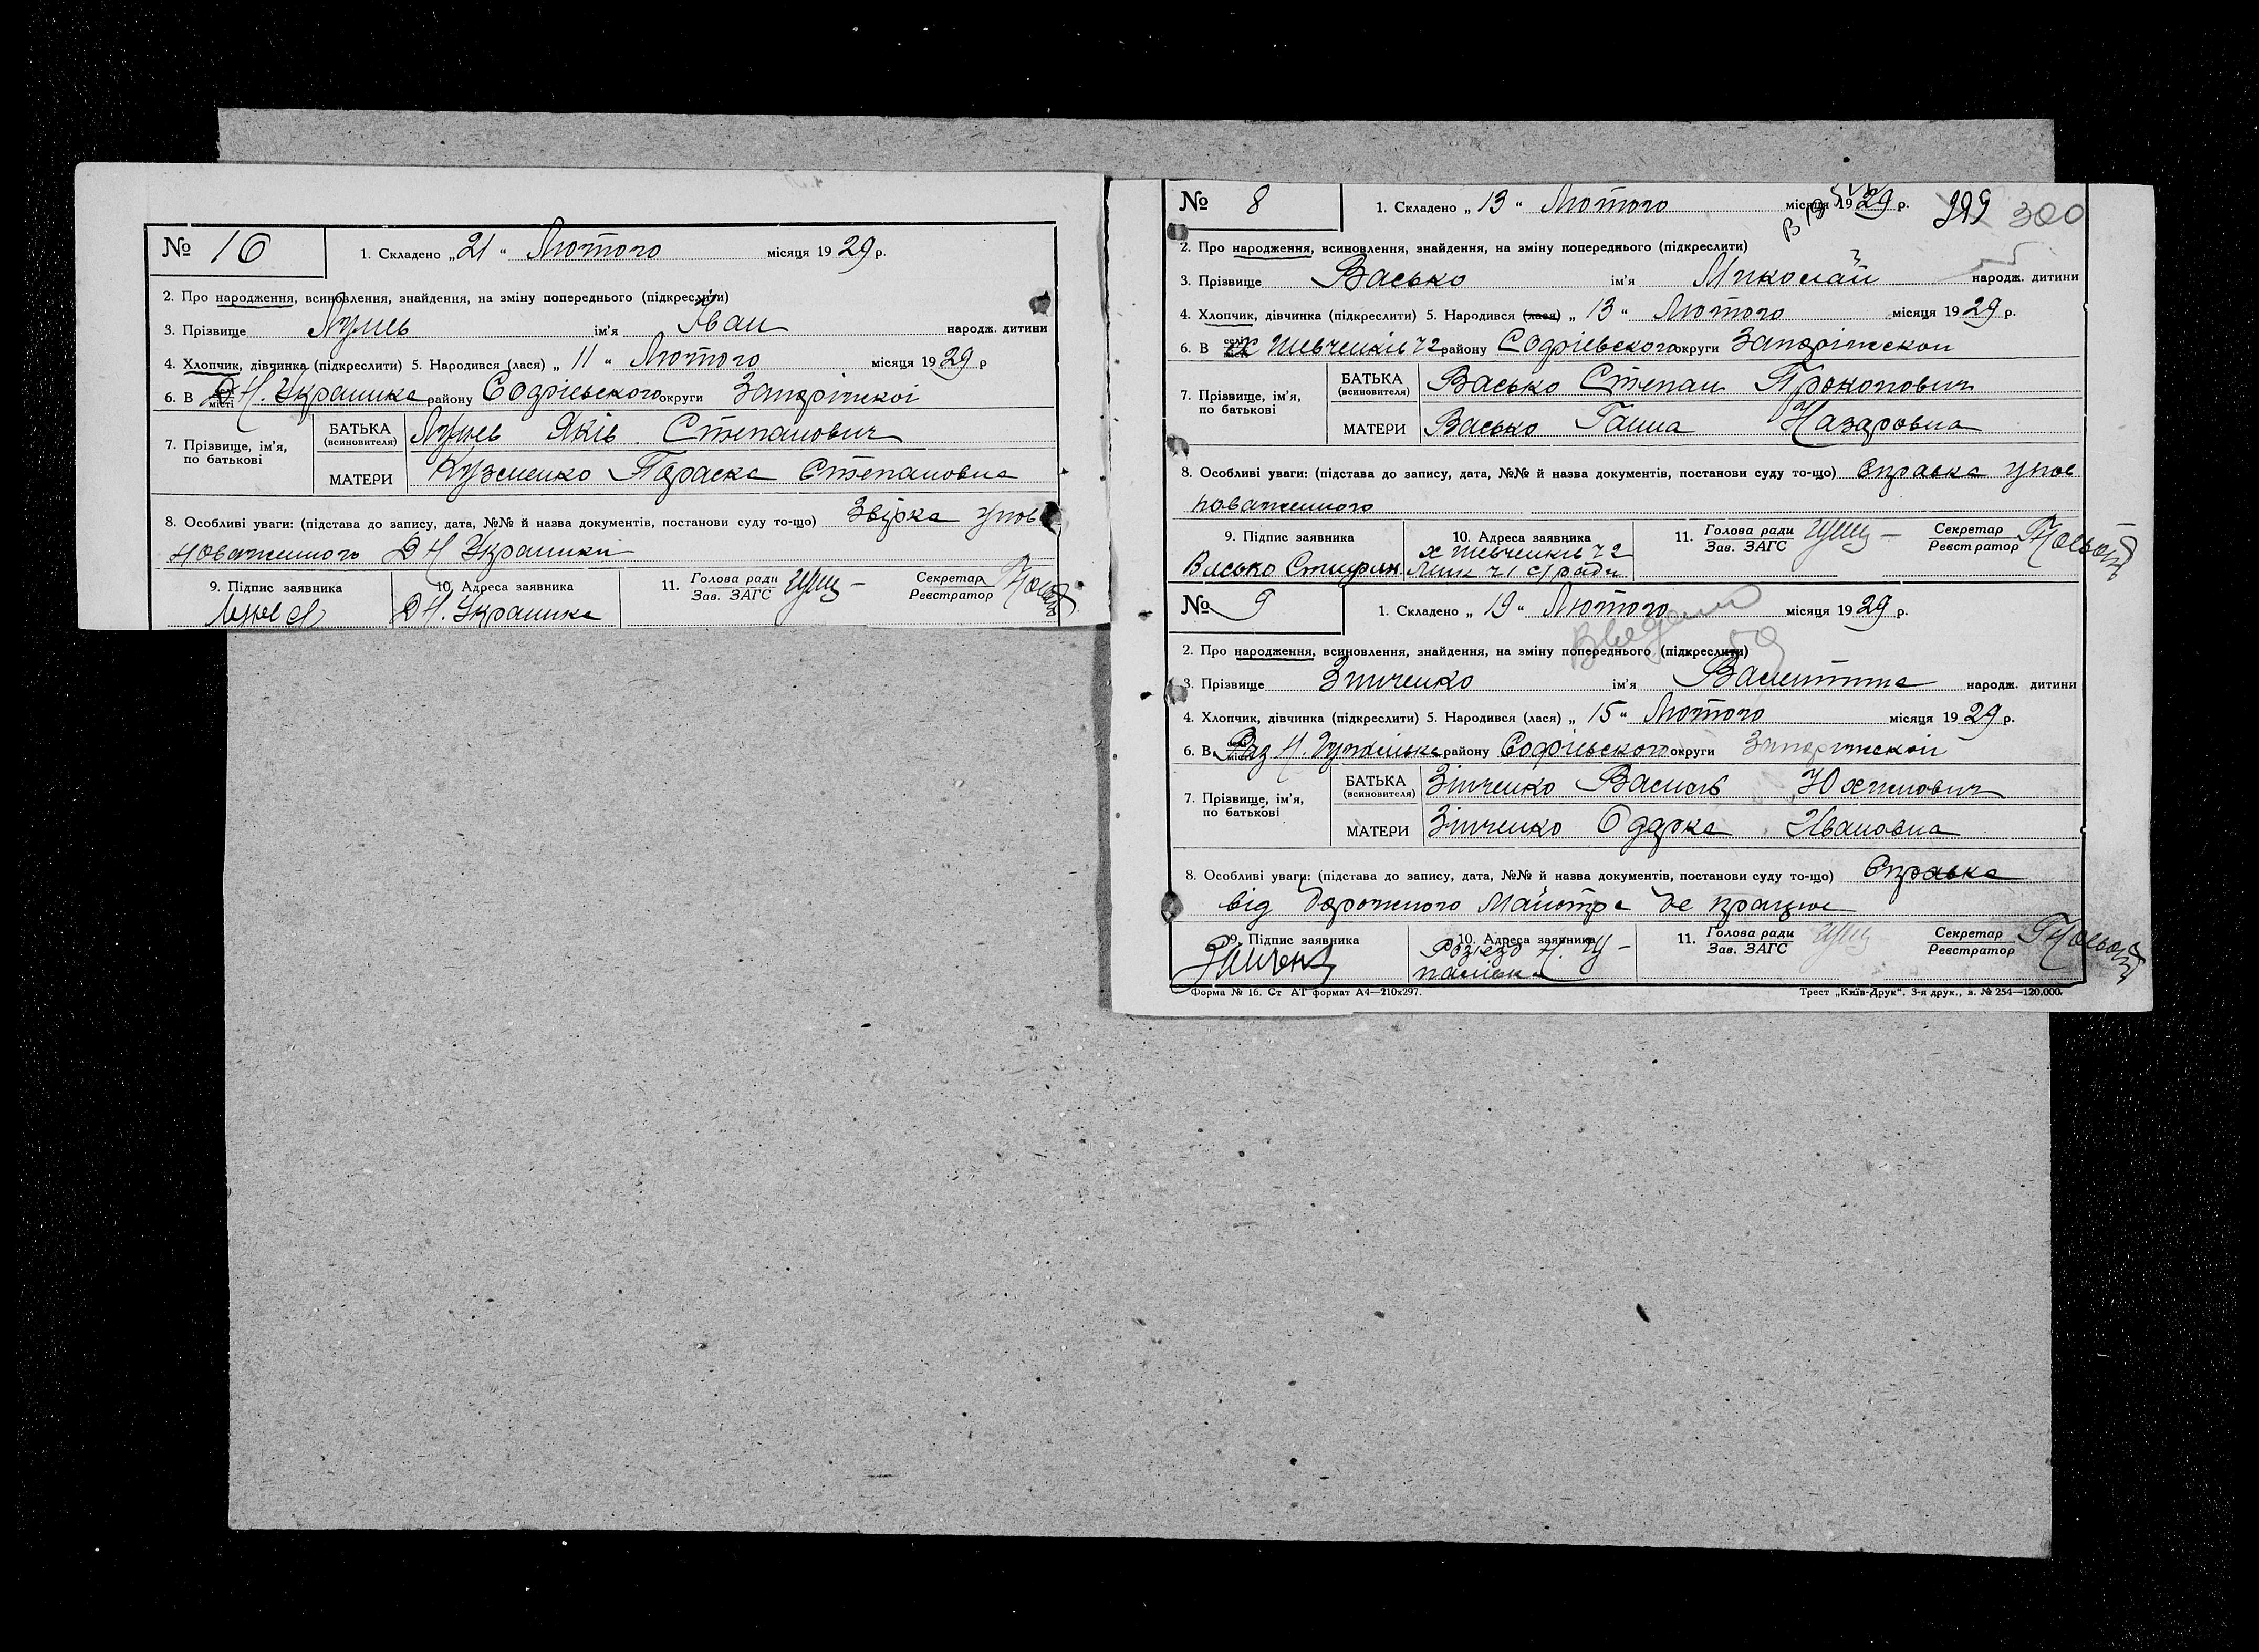 № 10 1. Складено „ 21 “ Лютого місяця 19 29 р.
2. Про народження, всиновлення, знайдення, на зміну попереднього (підкреслити)
3. Прізвище Лунев ім'я Іван народж. дитини
4. Хлопчик, дівчинка (підкреслити) 5. Народився (лася) „ 11 “ Лютого місяця 19 29 р
6. В Н. Украинка району Софіевского округи Запоріжскої
7. Прізвище, ім'я, по батькові
БАТЬКА (всиновителя) Яків Степанович
МАТЕРИ Кузменко Параска Степановна
8. Особливі уваги: (підстава до запису, дата, №№ й назва документів, постанови суду то-що) Звірка упов
новаженного Д Н Украинки
9. Підпис заявника 10. Адреса заявника 11. Голова ради Секретар
Зав. ЗАГС Реєстратор
Д Н. Украинка
№ 8 1. Складено „ 13 “ Лютого місяця 19 29 р. 300
2. Про народження, всиновлення, знайдення, на зміну попереднього (підкреслити)
3. Прізвище Васько ім'я Миколай народж. дитини
4. Хлопчик, дівчинка (підкреслити) 5. Народився (лася) „ 13 “ Лютого місяця 19 29 р.
6. В х Шевченків ч2 району Софіевского округи Запоріжскои
7. Прізвище, ім'я, по батькові
БАТЬКА (всиновителя) Васько Степан Прокопович
МАТЕРИ Васько Ганна Назаровна
8. Особливі уваги: (підстава до запису, дата, №№ й назва документів, постанови суду то-що) Справка упов
новаженного
9. Підпис заявника 10. Адреса заявника 11. Голова ради Секретар
Зав. ЗАГС Реєстратор
х Шевченків ч2
Васько с/ради
№ 9 1. Складено „ 19 “ Лютого місяця 19 29 р.
2. Про народження, всиновлення, знайдення, на зміну попереднього (підкреслити)
3. Прізвище Зинченко ім'я Валентина народж. дитини
4. Хлопчик, дівчинка (підкреслити) 5. Народився (лася) „ 15 “ Лютого місяця 19 29 р.
6. В Раз Н. району Софіевского округи Запоріжскої
7. Прізвище, ім'я, по батькові
БАТЬКА (всиновителя) Зінченко Василь Юхимович
МАТЕРИ Зінченко Одарка Ивановна
8. Особливі уваги: (підстава до запису, дата, №№ й назва документів, постанови суду то-що) Справка
від Дорожного Майстра де працює
9. Підпис заявника 10. Адреса заявника 11. Голова ради Секретар
Зав. ЗАГС Реєстратор
Розіезд Н.
Форма № 16. Ст АТ формат А4—210x297. Трест „Київ-Друк“. 3-я друк., з. № 254—120.000.